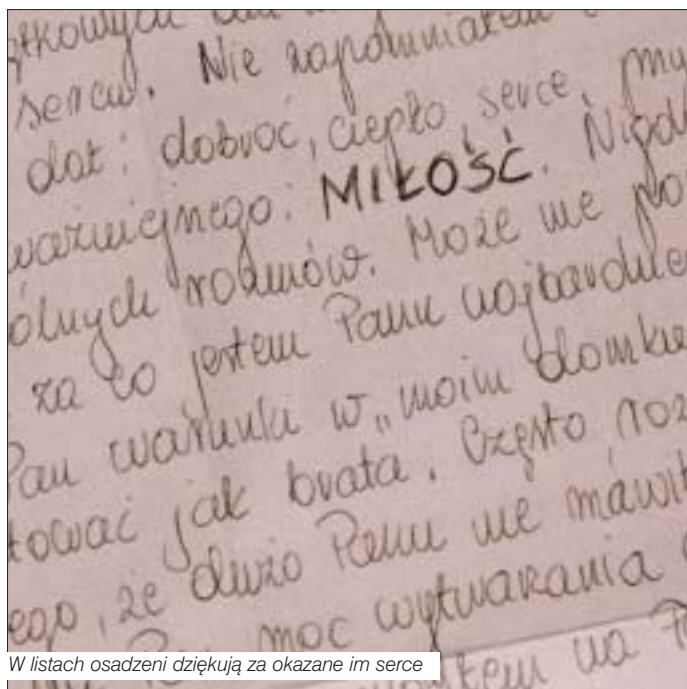 sercu. Nie zapomniałem
dał: dobroć, ciepło, serce,
MIŁOŚĆ.
rozmów. Może nie
za co jestem Panu najbardzie
Pan warunki w „moim domku
tować jak brata. Często roz
ego, że dużo Panu nie mówił
moc wytwarzania
na
W listach osadzeni dziękują za okazane im serce